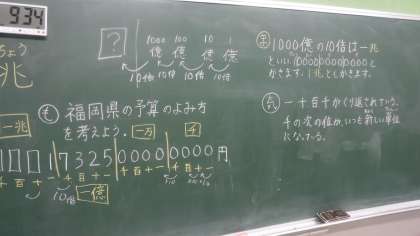 934
ちょう
兆
? 1000億 100億 10億 1億
10倍 10倍 10倍 10倍
も 福岡県の予算のよみ方
を考えよう。
一兆 一万 千
17325 0000 0000円
千百十一 千百十一 千百十一 千百十一
10倍 一億
1000億の10倍は一兆
といい1000000000000と
かきます。1兆ともかきます。
一十百千がくり返されている。
千の次の位が、いつも新しい単位
になっている。